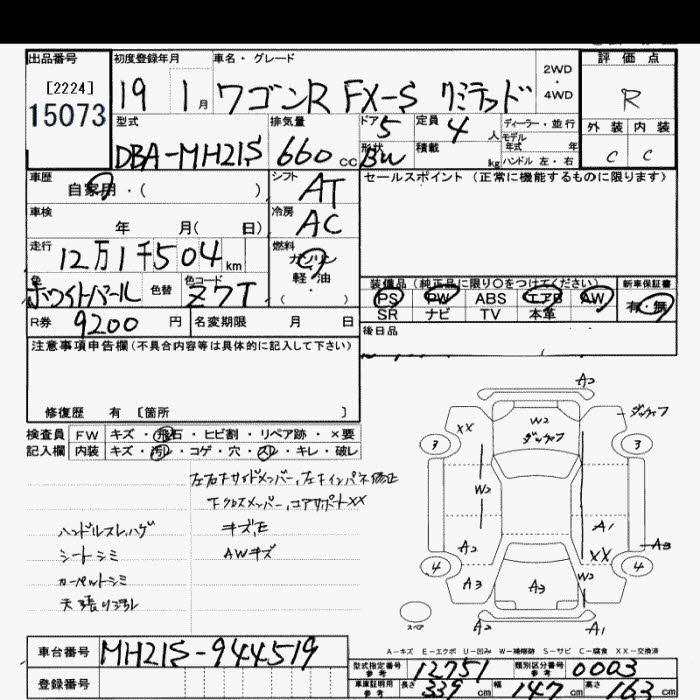 出品番号
[2224]
15073
初度登録年月
19 1月
車名・グレード
ワゴンR FX-S リミテッド
2WD
4WD
評価点
R
外装 内装
C C
型式
DBA-MH21S
排気量
660 cc
ドア 5
形状 BW
定員 4 人
積載 kg
ディーラー・並行
モデル
年式 年
ハンドル 左・右
車歴
自家用・( )
シフト
AT
セールスポイント (正常に機能するものに限ります)
車検
年 月( 日)
冷房
AC
走行
12万1千504km
燃料
ガソリン
軽・油
( ・ )
色
ホワイトパール
色替
色コード
Z7T
装備品 (純正品に限り○をつけてください)
PS PW ABS エアB AW
SR ナビ TV 本革
新車保証書
有・無
R券 9200 円
名変期限 月 日
後日品
注意事項申告欄(不具合内容等は具体的に記入して下さい)
修復歴 有 〔箇所 〕
検査員
記入欄
FW キズ・飛石・ヒビ割・リペア跡・×要
内装 キズ・汚レ・コゲ・穴・スレ・キレ・破レ
左右サイドメンバー、左右インパネ修正
下クロスメンバー、コアサポートXX
キズ、E
AWキズ
ハンドルスレ、ハゲ
シートシミ
カーペットシミ
天張り汚レ
A2
XX
W2
3
3
W2
A1
A2
XX
A3
4
4
W2
A3
A3
スペア
A2
A1
A-キズ E-エクボ U-凹み W-補修跡 S-サビ C-腐食 XX-交換済
車台番号 MH21S-944519
登録番号
型式指定番号
参考
12751
類別区分番号
参考
0003
車庫証明用
参考
長さ 339 cm 幅 147 cm 高さ 163 cm